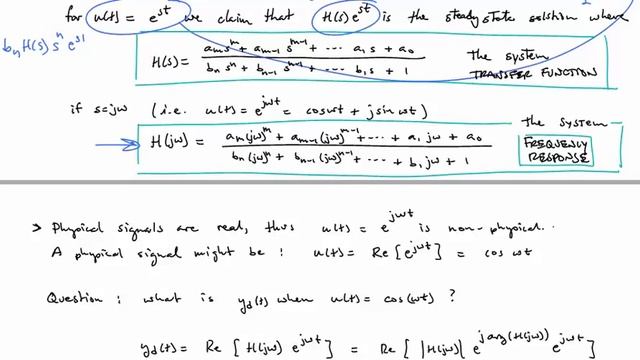 for u(t) = e^{st} we claim that H(s)e^{st} is the steady state solution where
b_n H(s) s^n e^{st}
H(s) = \frac{a_m s^m + a_{m-1} s^{m-1} + ... a_1 s + a_0}{b_n s^n + b_{n-1} s^{n-1} + ... b_1 s + 1} the system TRANSFER FUNCTION
if s=jω (i.e. u(t) = e^{jωt} = cos ωt + j sin ωt)
the system
H(jω) = \frac{a_m (jω)^m + a_{m-1} (jω)^{m-1} + ... + a_1 jω + a_0}{b_n (jω)^n + b_{n-1} (jω)^{n-1} + ... + b_1 jω + 1} FREQUENCY RESPONSE
> Physical signals are real, thus u(t) = e^{jωt} is non-physical..
A physical signal might be : u(t) = Re[e^{jωt}] = cos ωt
Question : what is y_d(t) when u(t) = cos(ωt) ?
y_d(t) = Re [ H(jω) e^{jωt} ] = Re [ |H(jω)| e^{j arg(H(jω))} e^{jωt} ]